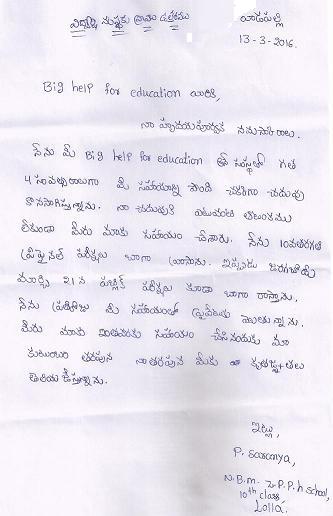 విద్యార్థి సంస్థకు వ్రాయు ఉత్తరము
13-3-2016.
Big help for education వారికి,
నా హృదయపూర్వక నమస్కారాలు.
నేను మీ Big help for education అనే సంస్థలో గత
4 సంవత్సరాలుగా మీ సహాయాన్ని పొంది చక్కగా చదువు
కొనసాగిస్తున్నాను. నా చదువుకి ఎటువంటి ఆటంకము
లేకుండా మీరు మాకు సహాయం చేసారు. నేను 10వతరగతి
ప్రీఫైనల్ పరీక్షలు బాగా వ్రాసాను. ఇప్పుడు జరగబోయే
మార్చి 21న పబ్లిక్ పరీక్షలు కూడా బాగా రాస్తాను.
నేను మీ సహాయంతో వెలుతున్నాను.
మీరు మాకు ఇంతవరకు సహాయం చేసినందుకు మా
కుటుంబం తరపున నా తరపున మీకు కృతజ్ఞతలు
తెలియజేస్తున్నాను.
ఇట్లు,
P. Saranya,
N.B.M. Z.P.P.h School,
10th class,
Lolla.